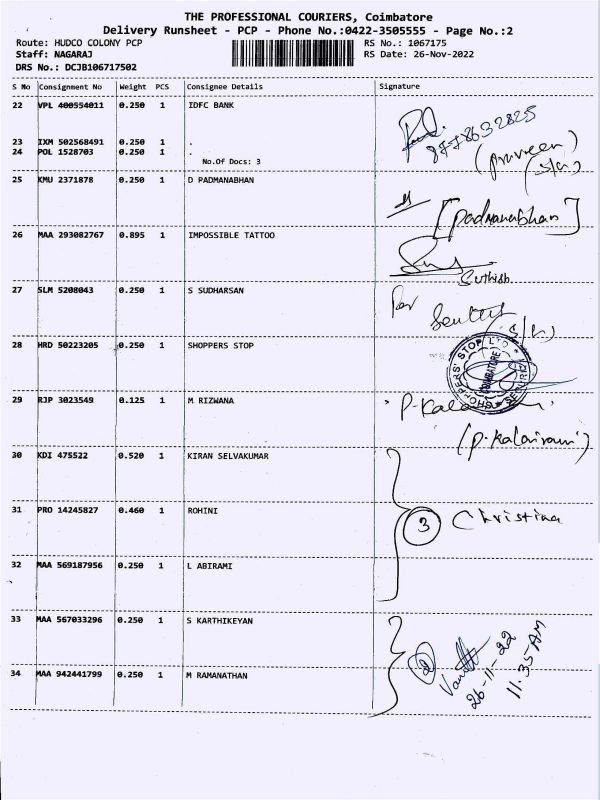 THE PROFESSIONAL COURIERS, Coimbatore
Delivery Runsheet - PCP - Phone No.:0422-3505555 - Page No.:2
Route: HUDCO COLONY PCP
RS No.: 1067175
Staff: NAGARAJ
RS Date: 26-Nov-2022
DRS No.: DCJB106717502
S No Consignment No Weight PCS Consignee Details Signature
22 VPL 400554011 0.250 1 IDFC BANK
8778632825
23 IXM 502568491 0.250 1 .
(praveen)
24 POL 1528703 0.250 1 .
No.Of Docs: 3
(S/h)
25 KMU 2371878 0.250 1 D PADMANABHAN
[Padmanabhan]
26 MAA 293082767 0.895 1 IMPOSSIBLE TATTOO
Suthish
27 SLM 5208043 0.250 1 S SUDHARSAN
28 HRD 50223205 0.250 1 SHOPPERS STOP
SHOPPERS' STOP LTD
COIMBATORE
SECURITY
29 RJP 3023549 0.125 1 M RIZWANA
(P. Kalairani)
30 KDI 475522 0.520 1 KIRAN SELVAKUMAR
31 PRO 14245827 0.460 1 ROHINI
3 Christina
32 MAA 569187956 0.250 1 L ABIRAMI
33 MAA 567033296 0.250 1 S KARTHIKEYAN
2
26-11-22
11.35 AM
34 MAA 942441799 0.250 1 M RAMANATHAN